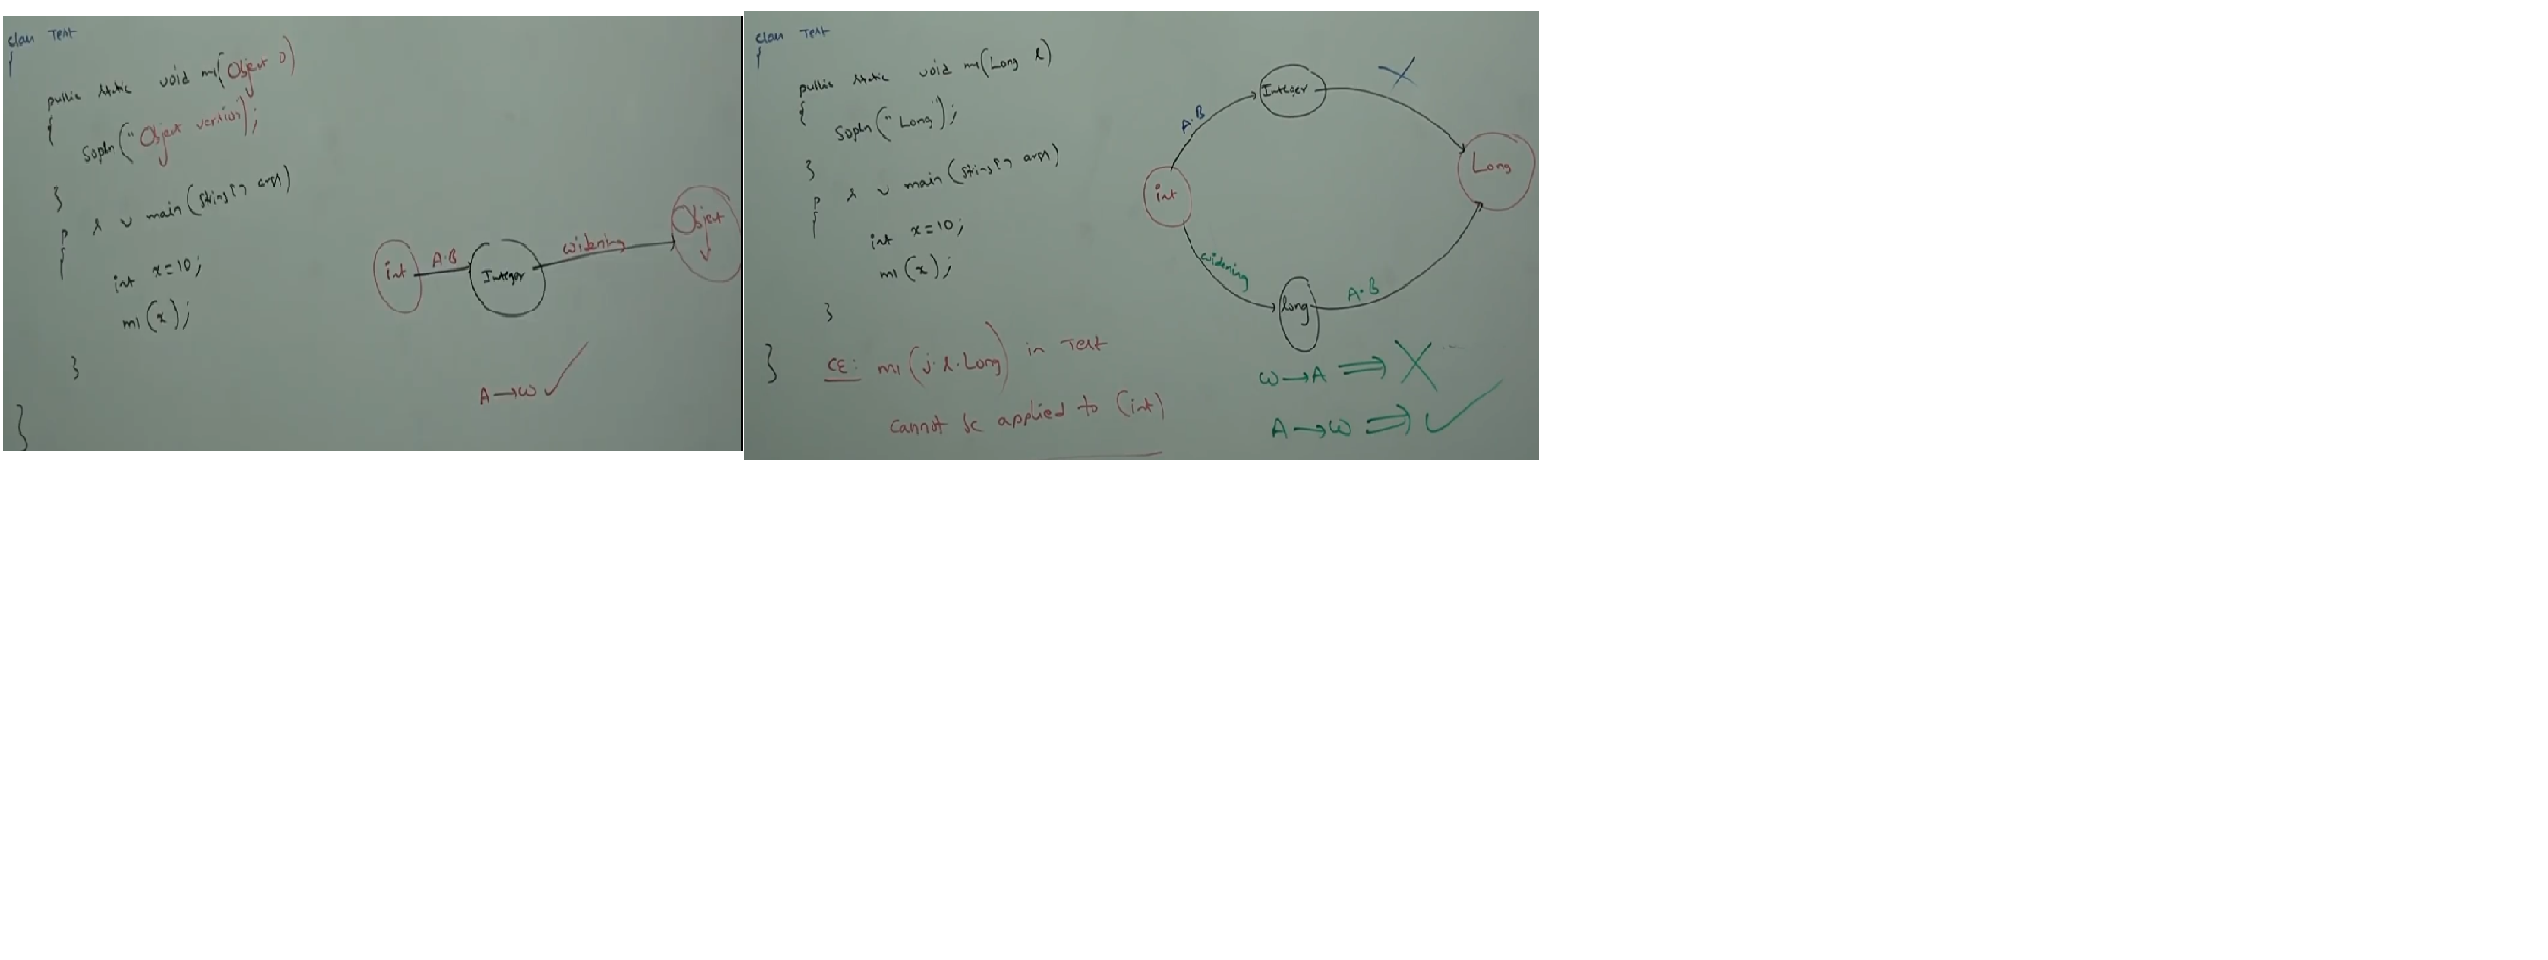 class Test
{
public static void m1(Object o)
{
Sopln("Object version);
}
p s v main(String[] args)
{
int x=10;
m1(x);
}
}
int
A·B
Integer
widening
Object
A→w
class Test
{
public static void m1(Long l)
{
Sopln("Long);
}
p s v main(String[] args)
{
int x=10;
m1(x);
}
}
CE: m1(j.l.Long) in Test
cannot be applied to (int)
int
A·B
Integer
Long
widening
long
A·B
w→A ⟹ X
A→w ⟹ ✓